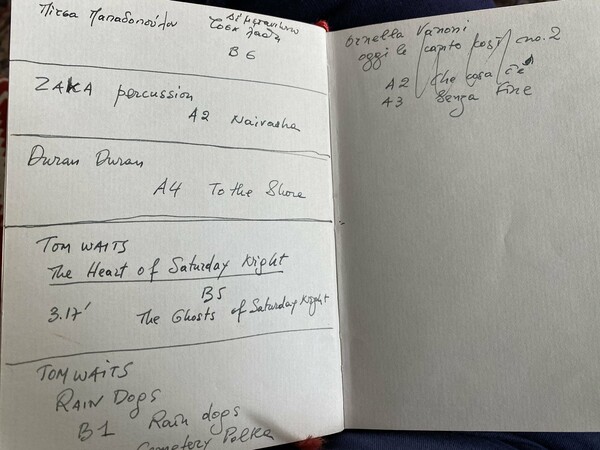 Πίτσα Παπαδοπούλου
B6
ZAKA percussion
A2 Naivasha
Duran Duran
A4 To the Shore
TOM WAITS
The Heart of Saturday Night
B5
3.17' The Ghosts of Saturday Night
TOM WAITS
RAIN DOGS
B1 Rain dogs
Cemetery Polka
Ornella Vanoni
oggi le canto così, no. 2
A2 Che cosa c'è
A3 Senza Fine